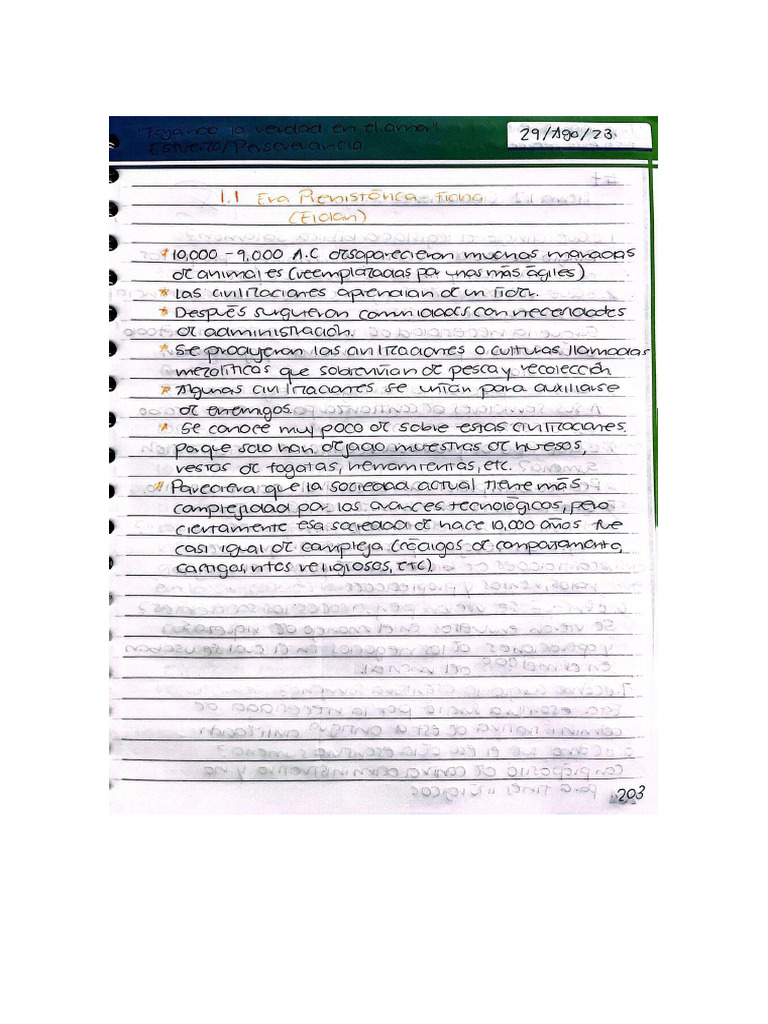 "Forjando la verdad en el amor"
Esfuerzo/Perseverancia
29/Ago/23
1.1 Era Prehistórica
(El clan)
* 10,000 - 9,000 A.C desaparecieron muchas manadas
de animales (reemplazadas por unas más ágiles)
* Las civilizaciones aprendían de un líder.
* Después surgieron comunidades con necesidades
de administración.
* Se produjeron las civilizaciones o culturas llamadas
mezolíticas que sobrevivían de pesca y recolección
* Algunas civilizaciones se unían para auxiliarse
de enemigos.
* Se conoce muy poco de sobre estas civilizaciones,
porque solo han dejado muestras de huesos,
restos de fogatas, herramientas, etc.
* Pareciera que la sociedad actual tiene más
complejidad por los avances tecnológicos, pero
ciertamente esa sociedad de hace 10,000 años fue
casi igual de compleja (códigos de comportamiento,
castigos, ritos religiosos, etc).
203